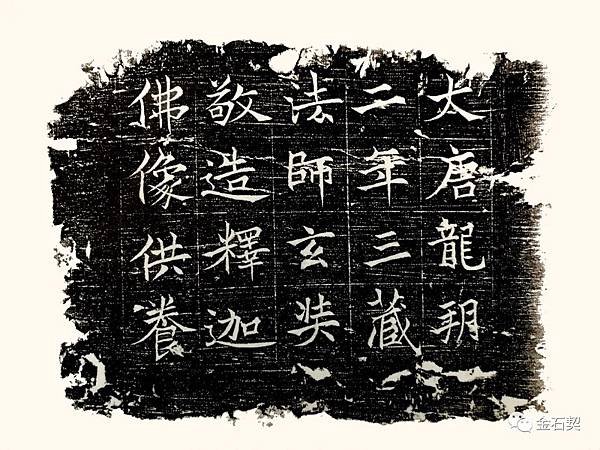 大唐龍朔
二年三藏
法師玄奘
敬造釋迦
佛像供養
金石契